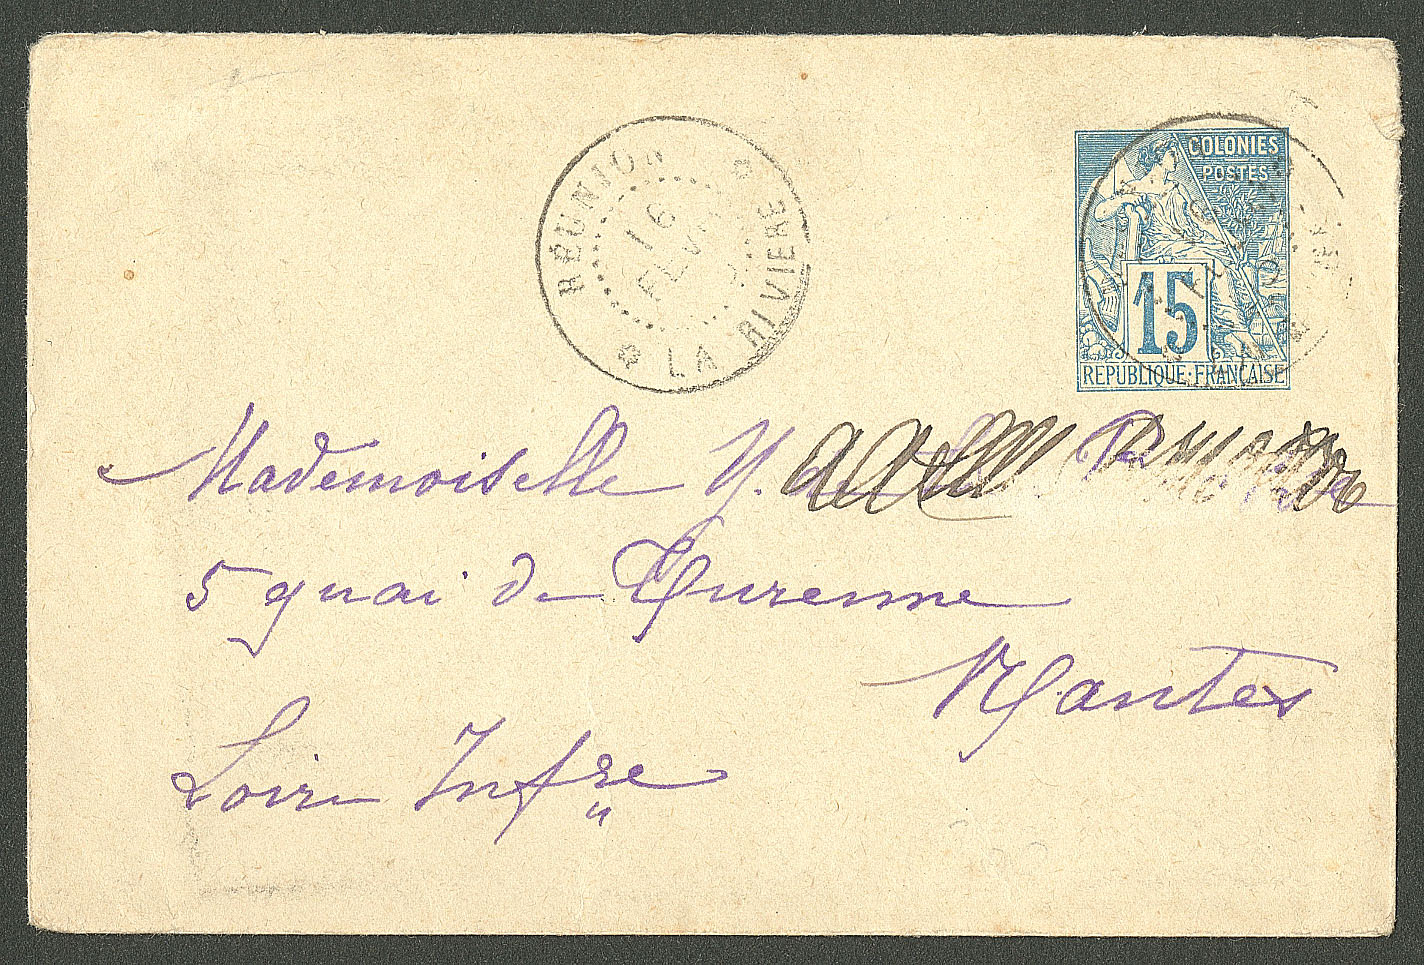 RÉUNION
16
FEVR
LA RIVIERE
COLONIES
POSTES
15
REPUBLIQUE·FRANÇAISE
Mademoiselle Y.
5 quai de Turenne
Nantes
Loire Infre